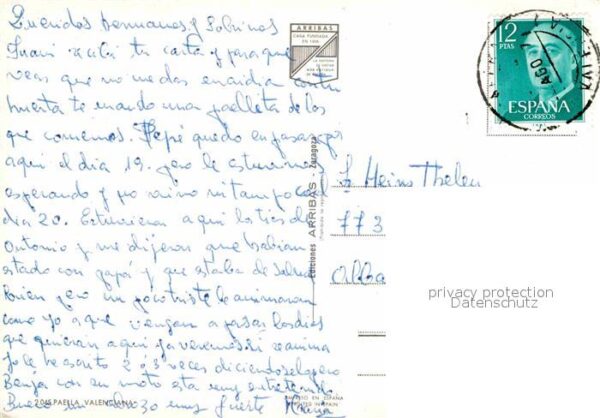 Queridos hermanos y Sobrinos
Juani recibi tu carta y para que
veas que no me das envidia con tu
huerta te mando una paelleta de las
que comemos. Pepe quedo en pasar por
aqui el dia 19. pero le estuvimos
esperando y no vino ni tampoco el
dia 20. Estuvieron aqui los tios de
Antonio y me dijeron que habian
estado con papá y que estaba de salud
bien pero un poco triste le animaron
como yo a que vengan a pasar los dias
que quieran aqui ya veremos si se anima
yo le he escrito 2 ó 3 veces diciendoselo pero
Benja con su moto esta muy entretenido
Bueno un abrazo muy fuerte Maria
2045 PAELLA VALENCIANA
ARRIBAS
CASA FUNDADA
Ediciones ARRIBAS - Zaragoza
IMPRESO EN ESPAÑA
PRINTED IN SPAIN
12
PTAS
ESPAÑA
CORREOS
Heins Thelen
773
privacy protection
Datenschutz